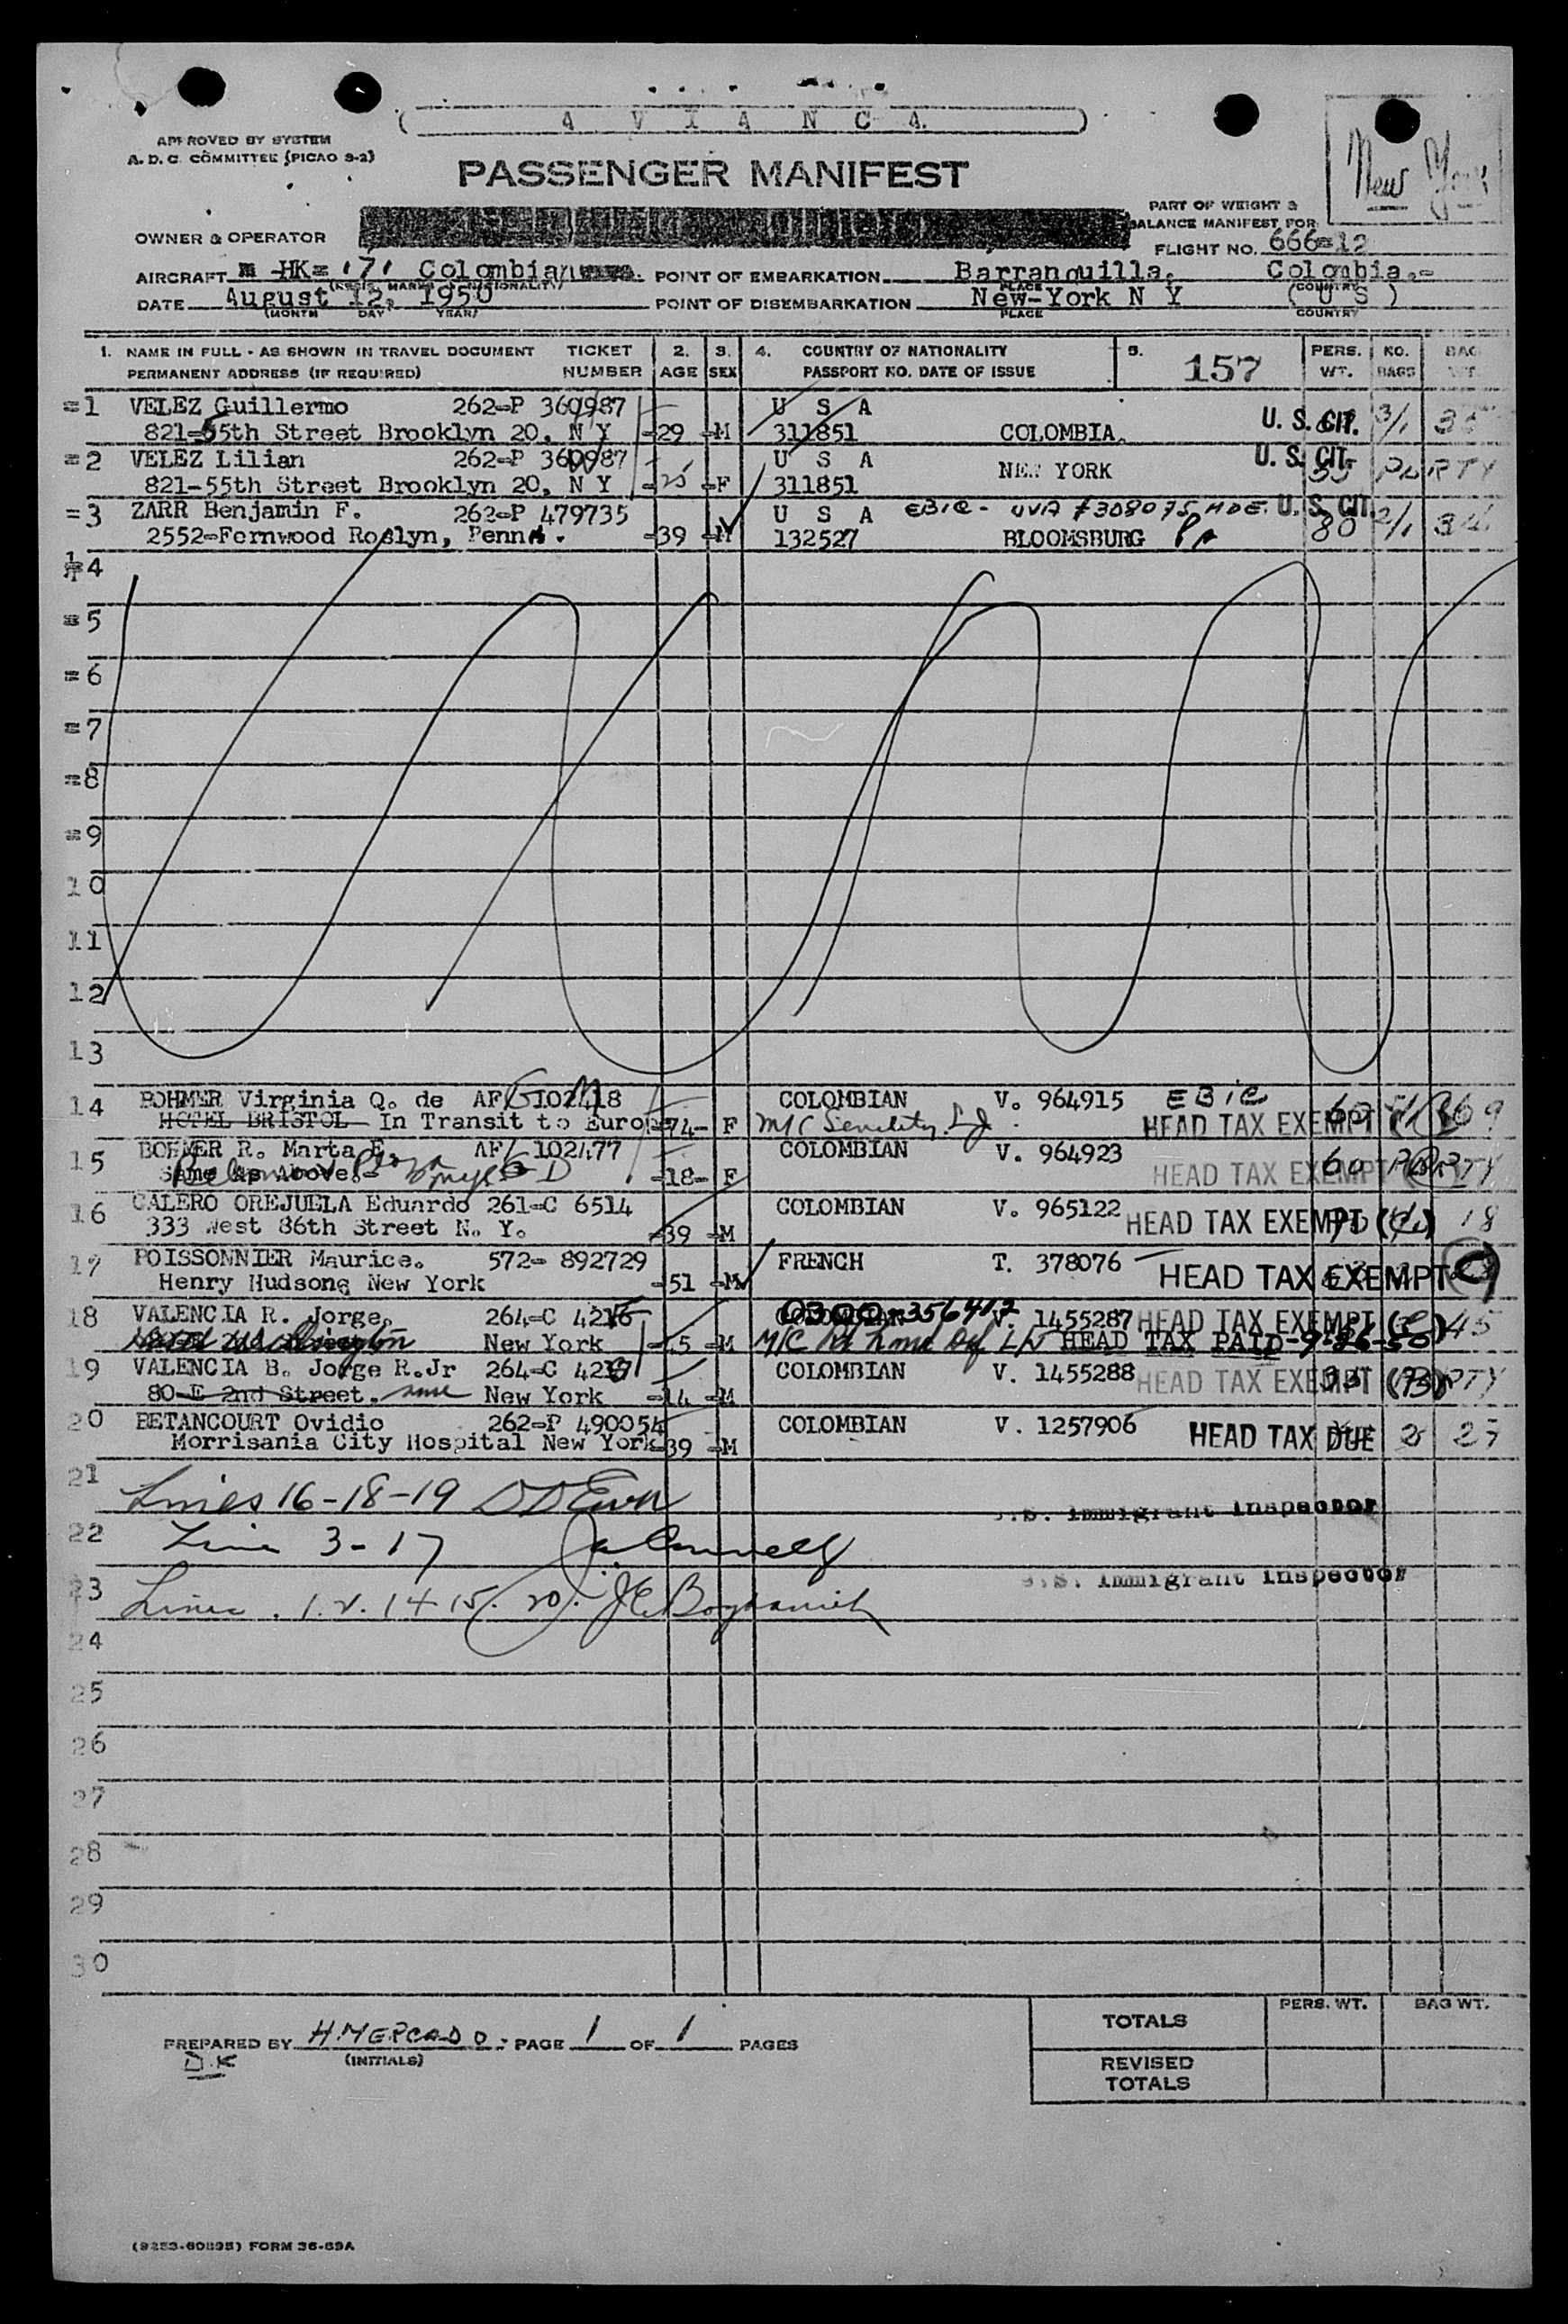 A V I A N C A.
APPROVED BY SYSTEM
A. D. C. COMMITTEE (PICAO S-2)
PASSENGER MANIFEST
New York
PART OF WEIGHT &
BALANCE MANIFEST FOR
OWNER & OPERATOR
FLIGHT NO. 666-12
AIRCRAFT HK- 171 Colombian POINT OF EMBARKATION Barranquilla. Colombia.-
(REGIS. MARKS & NATIONALITY) PLACE COUNTRY
DATE August 12, 1950 POINT OF DISEMBARKATION New-York N Y ( U S )
(MONTH DAY YEAR) PLACE COUNTRY
1. NAME IN FULL - AS SHOWN IN TRAVEL DOCUMENT TICKET 2. 3. 4. COUNTRY OF NATIONALITY 5. 157 PERS. NO. BAG
PERMANENT ADDRESS (IF REQUIRED) NUMBER AGE SEX PASSPORT NO. DATE OF ISSUE WT. BAGS WT.
=1 VELEZ Guillermo 262-P 360987 U S A U. S. CIT. 3/1
821-55th Street Brooklyn 20, N Y -29 -M 311851 COLOMBIA.
=2 VELEZ Lilian 262-P 360987 U S A U. S. CIT. 55 PARTY
821-55th Street Brooklyn 20, N Y -25 -F 311851 NEW YORK
=3 ZARR Benjamin F. 262-P 479735 U S A EBIC - UVA #308075 HDE. U. S. CIT. 80 2/1 34
2552-Fernwood Roslyn, Penna. -39 -M 132527 BLOOMSBURG PA
=4
=5
=6
=7
=8
=9
10
11
12
13
14 BOHMER Virginia Q. de AF/ 102418 COLOMBIAN V. 964915 EBIC
HOTEL BRISTOL In Transit to Europe -74- F M/C Senility HEAD TAX EXEMPT
15 BOHMER R. Marta E. AF/ 102477 COLOMBIAN V. 964923
Same As Above.- -18- F HEAD TAX EXEMPT 60 PARTY
16 CALERO OREJUELA Eduardo 261-C 6514 COLOMBIAN V. 965122
333 West 86th Street N. Y. -39 -M HEAD TAX EXEMPT 18
17 POISSONNIER Maurice. 572- 892729 FRENCH T. 378076
Henry Hudsong New York -51 -M HEAD TAX EXEMPT
18 VALENCIA R. Jorge. 264-C 4216 0300-356412 V. 1455287 HEAD TAX EXEMPT 45
New York -M M/C HEAD TAX PAID-9-26-50
19 VALENCIA B. Jorge R.Jr 264-C COLOMBIAN V. 1455288 HEAD TAX EXEMPT (B) PARTY
80-E 2nd Street. same New York -14 -M
20 BETANCOURT Ovidio 262-P 490054 COLOMBIAN V. 1257906
Morrisania City Hospital New York -39 -M HEAD TAX DUE 2
21 Lines 16-18-19
U.S. Immigrant Inspector
22 Line 3-17
U.S. Immigrant Inspector
23 Lines. 1. 2. 14 15. 20.
24
25
26
27
28
29
30
PERS. WT. BAG WT.
TOTALS
PREPARED BY H. MERCADO PAGE 1 OF 1 PAGES
D.K (INITIALS)
REVISED
TOTALS
(9253-60895) FORM 36-89A